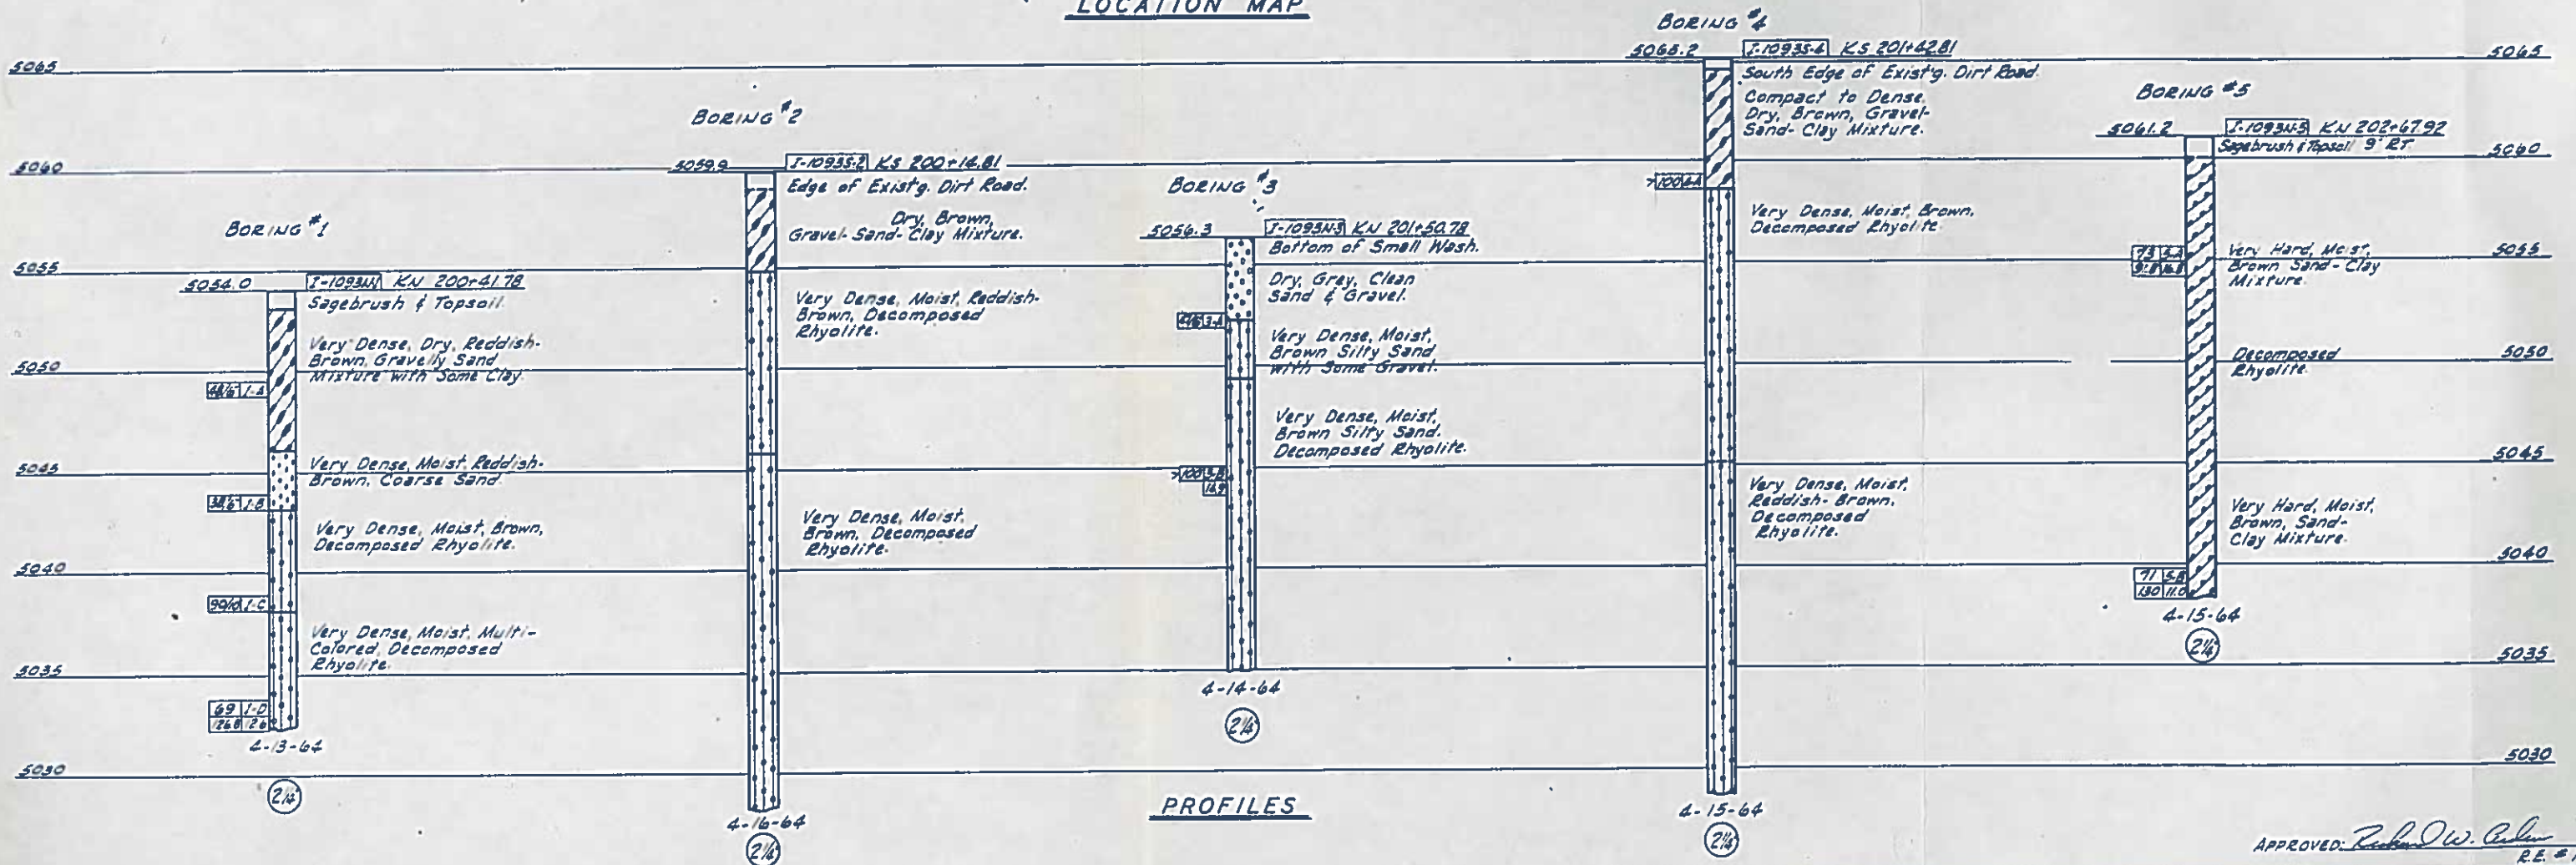 LOCATION MAP
BORING #1
5054.0 I-1093N-1 KN 200+41.78
Sagebrush & Topsoil.
Very Dense, Dry, Reddish-
Brown, Gravelly Sand
Mixture with Some Clay.
1-A
Very Dense, Moist, Reddish-
Brown, Coarse Sand.
1-B
Very Dense, Moist, Brown,
Decomposed Rhyolite.
1-C
Very Dense, Moist, Multi-
Colored, Decomposed
Rhyolite.
69 1-D
126.8 12.6
4-13-64
2¼
BORING #2
5059.9 I-1093S-2 KS 200+14.81
Edge of Exist'g. Dirt Road.
Dry, Brown,
Gravel-Sand-Clay Mixture.
Very Dense, Moist, Reddish-
Brown, Decomposed
Rhyolite.
Very Dense, Moist,
Brown, Decomposed
Rhyolite.
4-16-64
2¼
BORING #3
5056.3 I-1093N-3 KN 201+50.78
Bottom of Small Wash.
Dry, Grey, Clean
Sand & Gravel.
3-A
Very Dense, Moist,
Brown Silty Sand
with Some Gravel.
Very Dense, Moist,
Brown Silty Sand.
Decomposed Rhyolite.
>100 3-B
4-14-64
2¼
BORING #4
5065.2 I-1093S-4 KS 201+42.81
South Edge of Exist'g. Dirt Road.
Compact to Dense,
Dry, Brown, Gravel-
Sand-Clay Mixture.
>100 4-A
Very Dense, Moist, Brown,
Decomposed Rhyolite.
Very Dense, Moist,
Reddish-Brown,
Decomposed
Rhyolite.
4-15-64
2¼
BORING #5
5061.2 I-1093N-5 KN 202+67.92
Sagebrush & Topsoil 9' RT.
73 5-A
Very Hard, Moist,
Brown Sand-Clay
Mixture.
Decomposed
Rhyolite.
Very Hard, Moist,
Brown, Sand-
Clay Mixture.
71 5-B
130 11.0
4-15-64
2¼
5065
5060
5055
5050
5045
5040
5035
5030
5065
5060
5055
5050
5045
5040
5035
5030
PROFILES
APPROVED: Richard W.
R.E. #